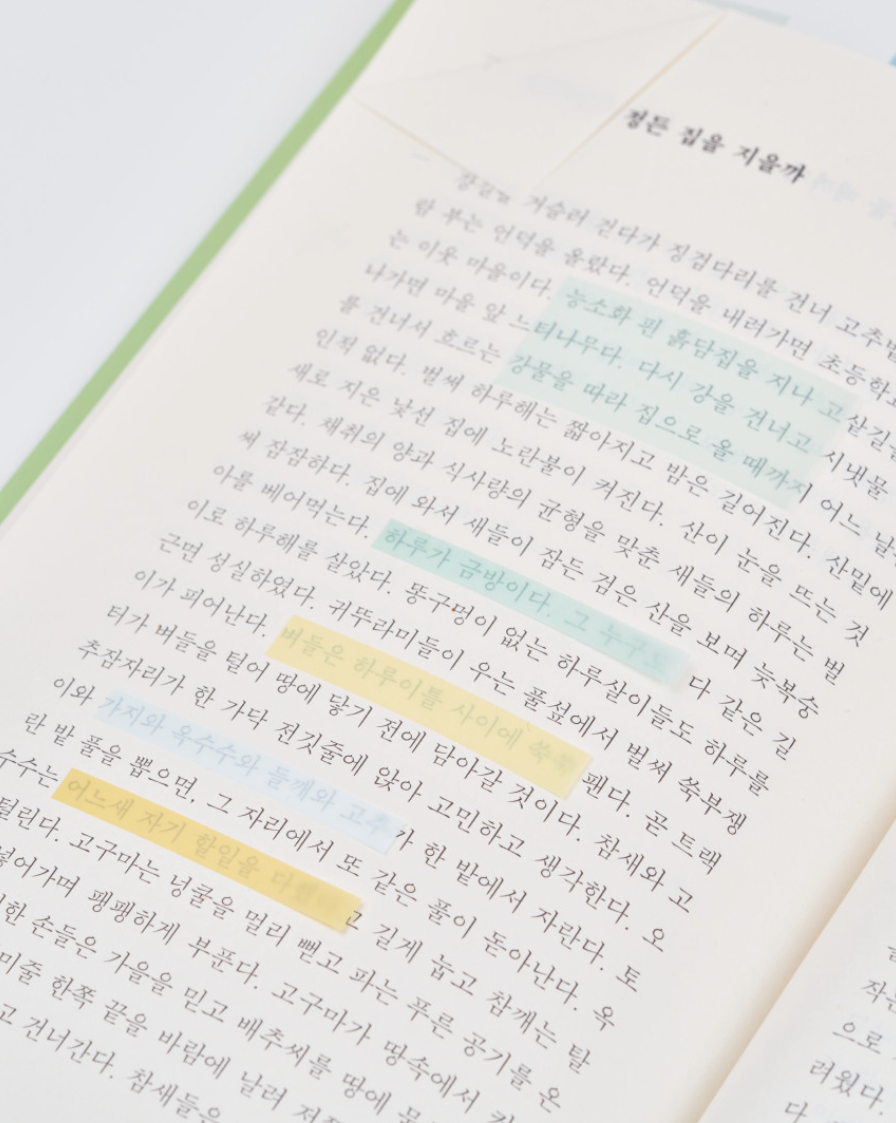 정든 집을 지을까
거슬러 걷다가 징검다리를 건너
람 부는 언덕을 올랐다. 언덕을 내려가면 초등학교
는 이웃 마을이다. 능소화 핀 흙담집을 지나 고샅길을
나가면 마을 앞 느티나무다. 다시 강을 건너고 시냇물
를 건너서 흐르는 강물을 따라 집으로 올 때까지 어느
인적 없다. 벌써 하루해는 짧아지고 밤은 길어진다. 산밑에
새로 지은 낯선 집에 노란불이 켜진다. 산이 눈을 뜨는 것
같다. 채취의 양과 식사량의 균형을 맞춘 새들의 하루는 벌
써 잠잠하다. 집에 와서 새들이 잠든 검은 산을 보며 늦복숭
아를 베어먹는다. 하루가 금방이다. 그 누구도 다 같은 길
이로 하루해를 살았다. 똥구멍이 없는 하루살이들도 하루를
근면 성실하였다. 귀뚜라미들이 우는 풀섶에서 벌써 쑥부쟁
이가 피어난다. 벼들은 하루이틀 사이에 쑥쑥 팬다. 곧 트랙
터가 벼들을 털어 땅에 닿기 전에 담아갈 것이다. 참새와 고
추잠자리가 한 가닥 전깃줄에 앉아 고민하고 생각한다. 오
이와 가지와 옥수수와 들깨와 고추가 한 밭에서 자란다. 토
란 밭 풀을 뽑으면, 그 자리에서 또 같은 풀이 돋아난다. 옥
수수는 어느새 자기 할일을 길게 눕고 참깨는 탈
털린다. 고구마는 넝쿨을 멀리 뻗고 파는 푸른 공기를 온
넣어가며 팽팽하게 부푼다. 고구마가 땅속에서
한 손들은 가을을 믿고 배추씨를 땅에
미줄 한쪽 끝을 바람에 날려
고 건너간다. 참새들은
작은
으로
려웠다.
다